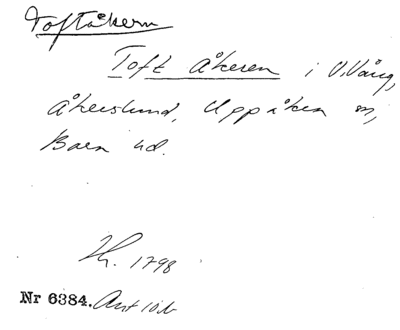 Toftåkern
Toft åkeren i V. Vång,
Åkerslund, Uppåkra sn,
Bara hd.
Kh. 1798
Nr 6384. Avt 10 b